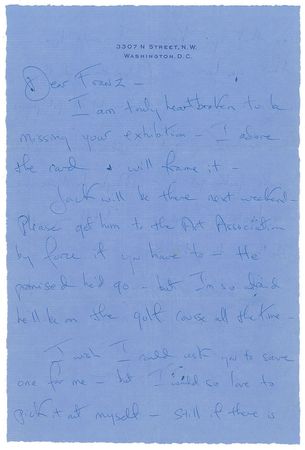 3307 N STREET, N.W.
WASHINGTON, D.C.
Dear Franz –
I am truly heartbroken to be
missing your exhibition – I adore
the card & will frame it –
Jack will be there next weekend –
Please get him to the Art Association
by force if you have to – He
promised he'd go – but I'm so afraid
he'll be on the golf course all the time –
I wish I could ask you to save
one for me – but I would so love to
pick it out myself – still if there is